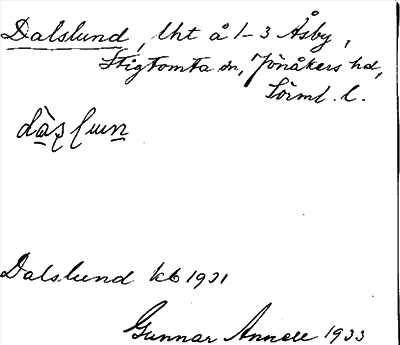 Dalslund, lht å 1-3 Åsby,
Stigtomta sn, Jönåkers hd,
Sörml. l.
Dalslund kb 1931
Gunnar Annell 1933